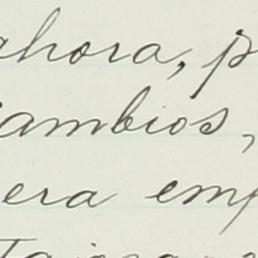 ahora, p
cambios,
era emp